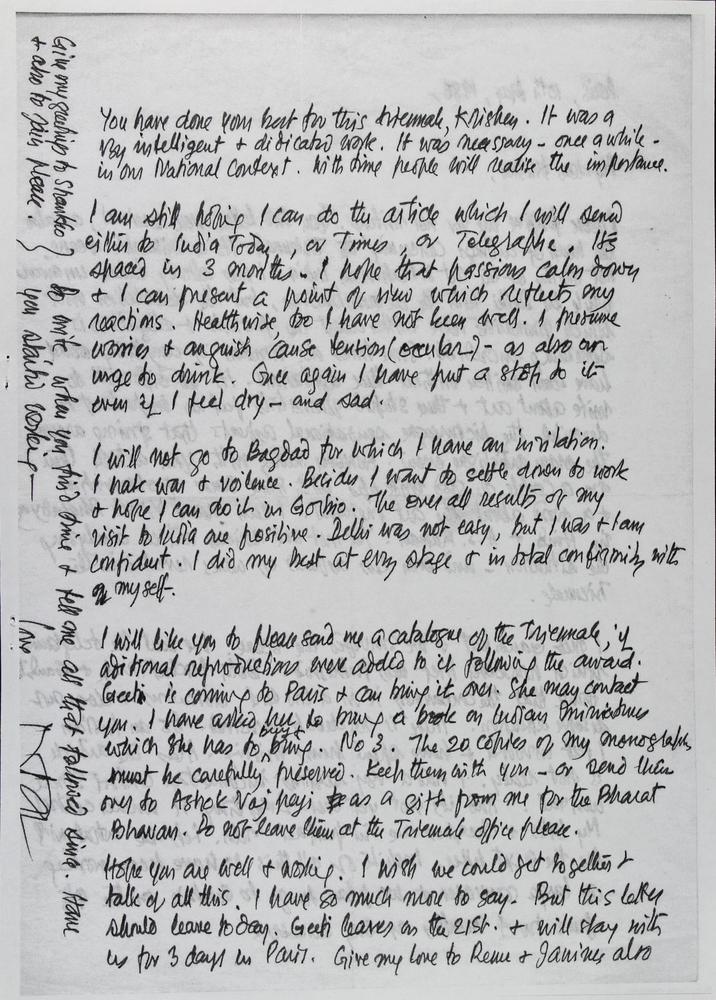 You have done your best for this triennale, Krishen. It was a
very intelligent + didicated work. It was necessary - once a while -
in our National Context. With time people will realise the importance.
I am still hoping I can do the article which I will send
either to India Today, or Times, or Telegraphe. It's
spaced in 3 months. I hope that passions calm down
+ I can present a point of view which reflects my
reactions. Healthwise, too I have not been well. I presume
worries + anguish cause tention (occular) - as also an
urge to drink. Once again I have put a stop to it
even if I feel dry - and sad.
I will not go to Bagdad for which I have an invitation.
I hate war + voilence. Besides I want to settle down to work
+ hope I can do it in Gorbio. The over all results of my
visit to India are positive. Delhi was not easy, but I was + I am
confident. I did my best at every stage + in total confirmity with
myself.
I will like you to please send me a catalogue of the Triennale, if
aditional reproductions were added to it following the award.
Geeti is coming to Paris + can bring it over. She may contact
you. I have asked her to bring a book on Indian Miniatures
which she has to buy + bring. No 3. The 20 copies of my monographs
must be carefully preserved. Keep them with you - or send them
over to Ashok Vajpeyi as a gift from me for the Bharat
Bhavan. Do not leave them at the Triennale office please.
Hope you are well + working. I wish we could get together +
talk of all this. I have so much more to say. But this letter
should leave today. Geeti leaves on the 21st. + will stay with
us for 3 days in Paris. Give my love to Renu + Janine's also
Give my greetings to
+ also to
Do write when you find time + tell me all that followed since.
you start working -